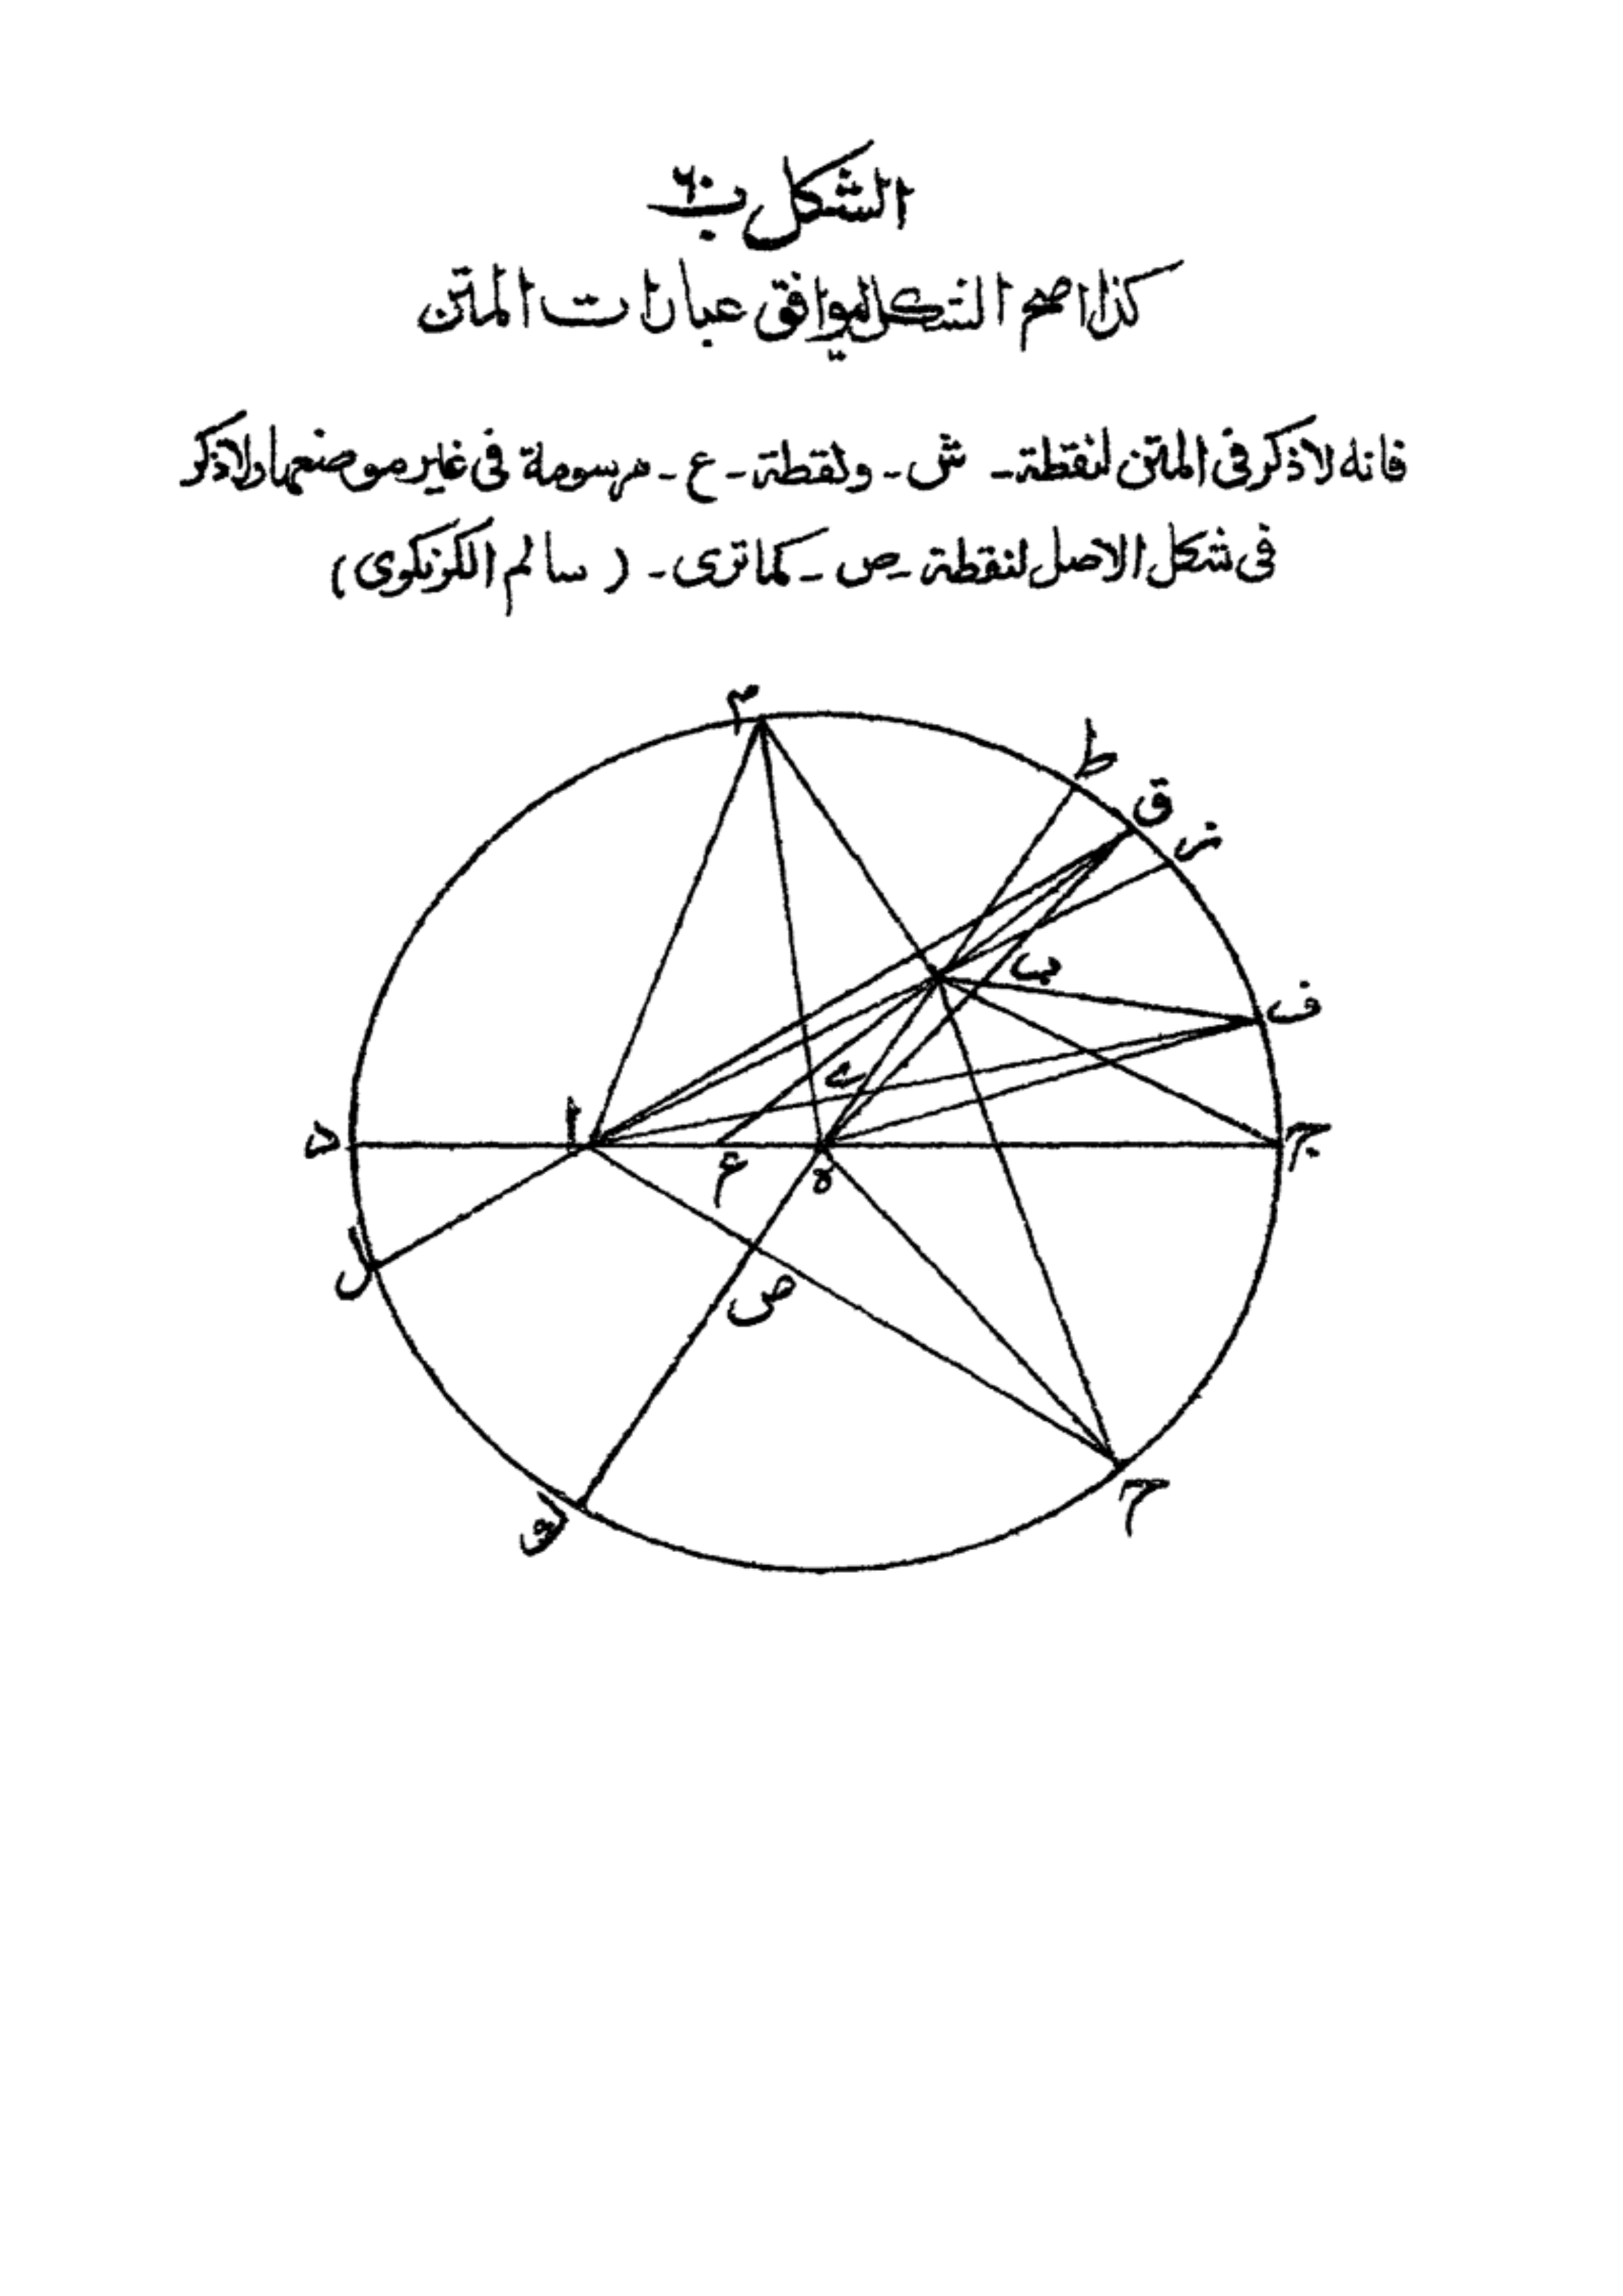 الشكل ب ٦٠
كذا اصح الشكل ليوافق عبارات المتن
فانه لا ذكر فى المتن لنقطة - ش - ولقطة - ع - مرسومة فى غير موضعها ولا ذكر
فى شكل الاصل لنقطة - ص - كما ترى - ( سالم الكرنكوى )
م
ط
ق
ز
ب
ف
ى
د
ا
ع
ه
ج
ل
ص
ك
ح